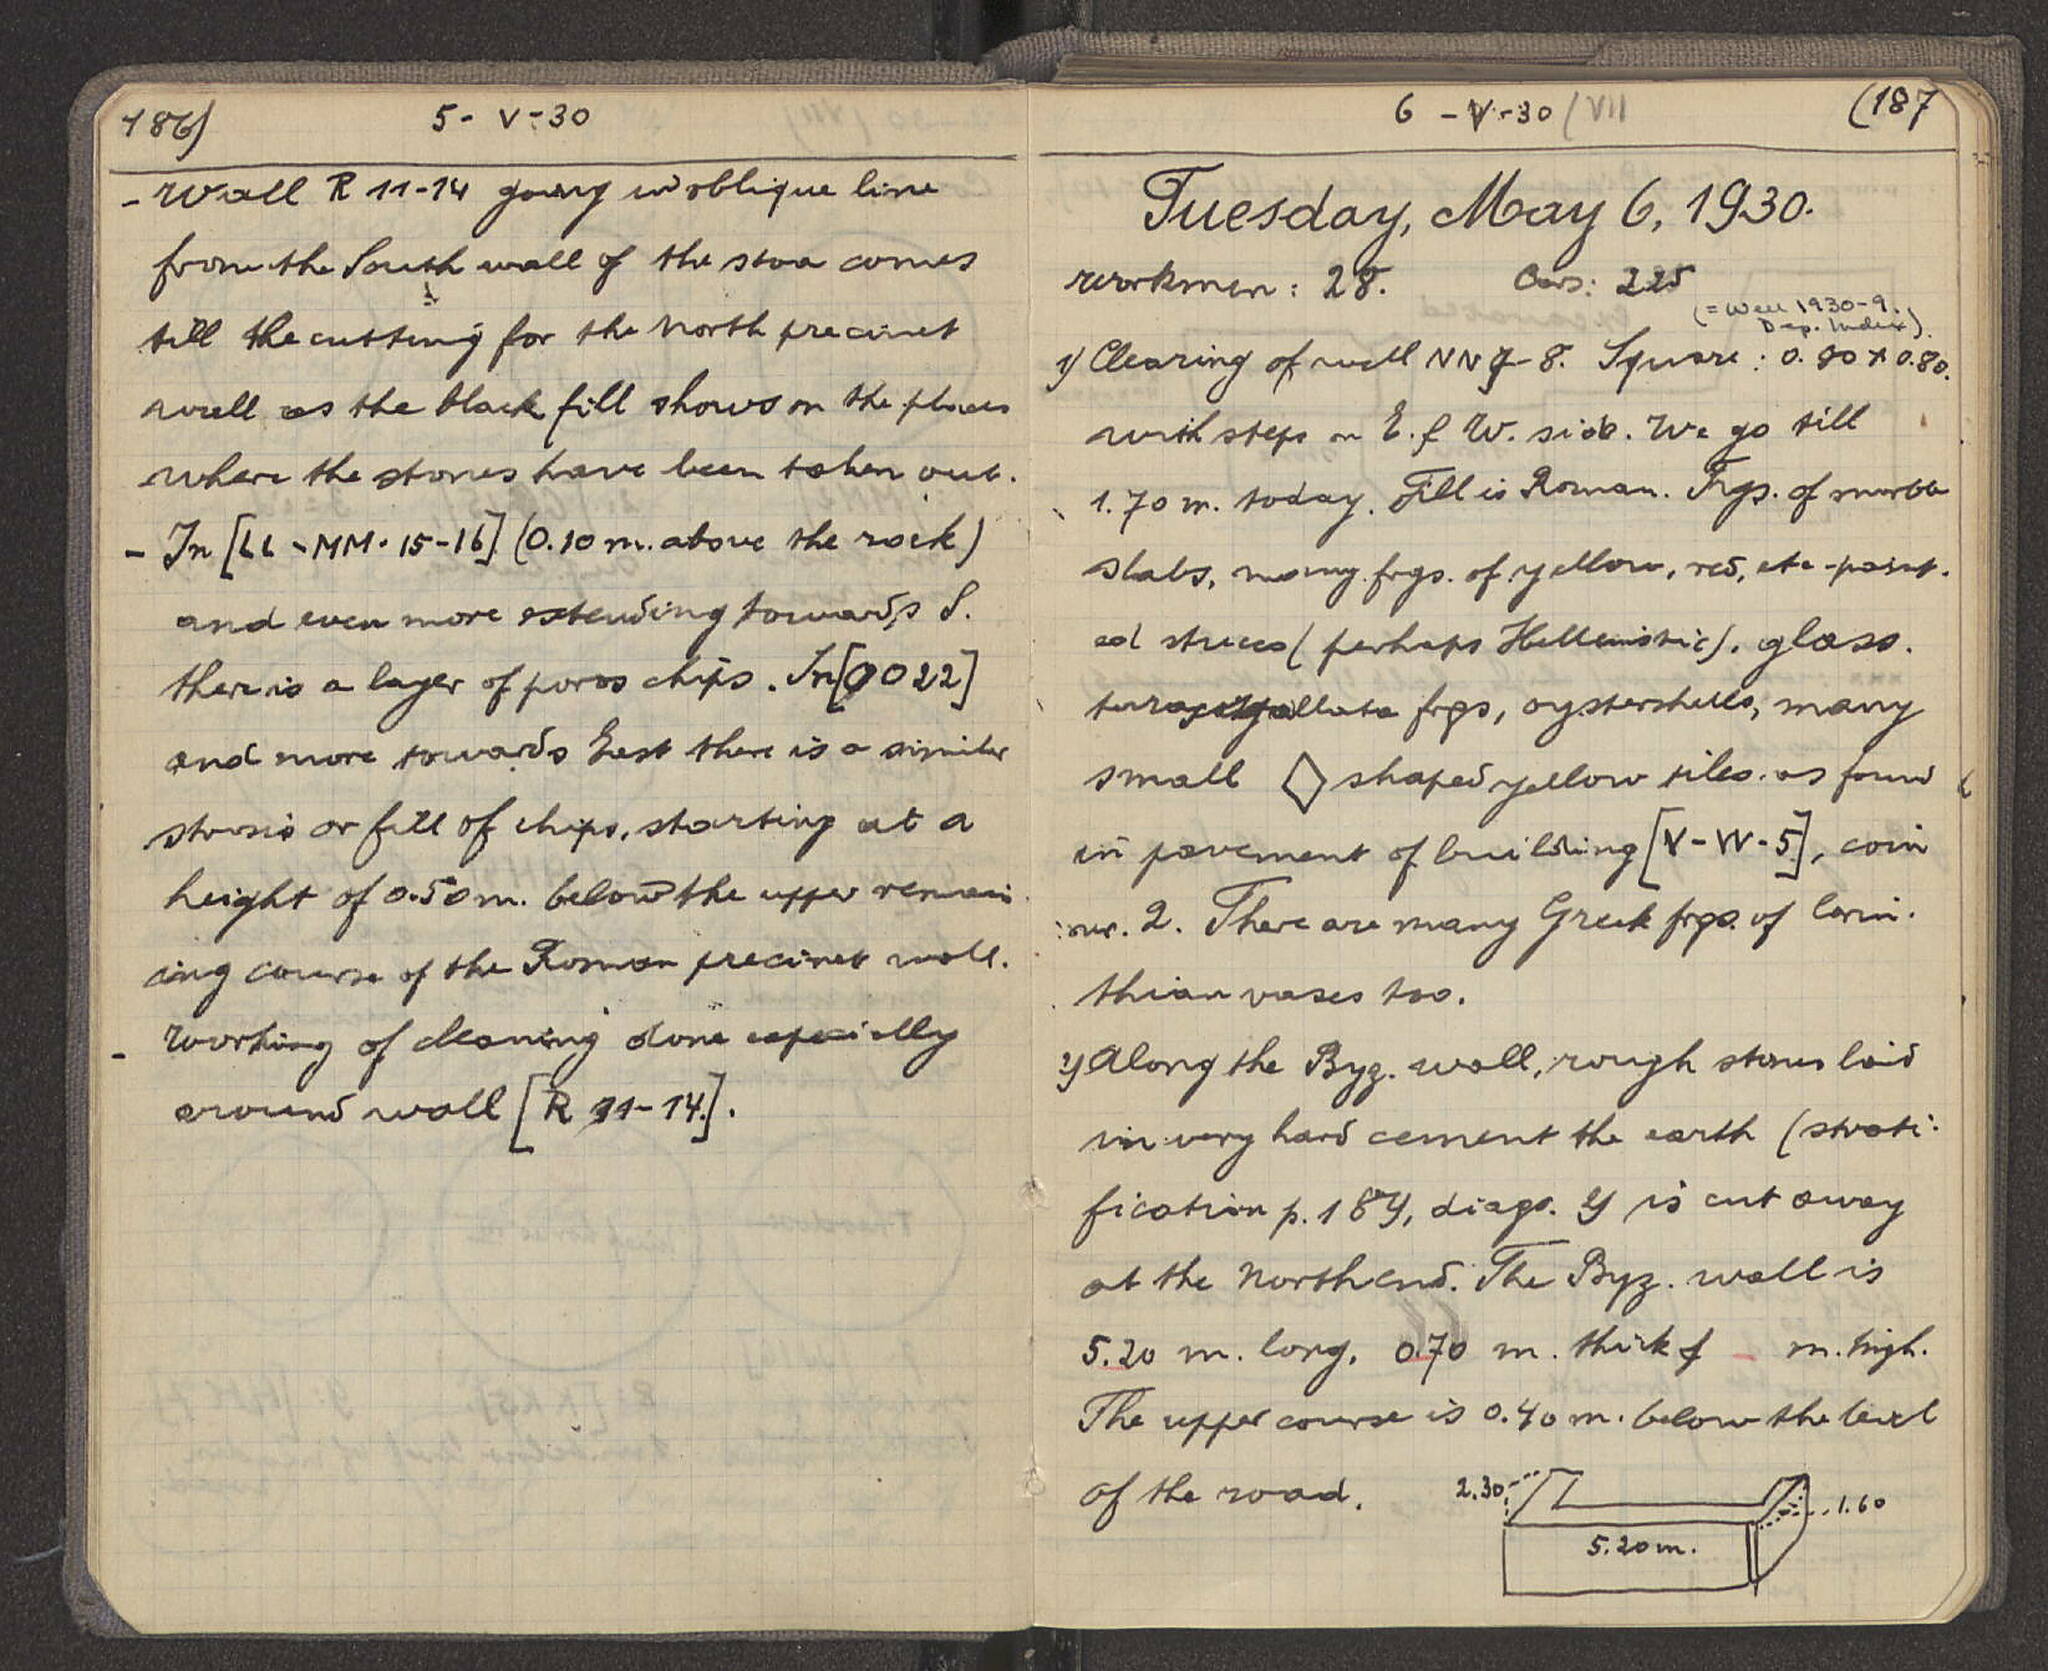 186)
5 - V - 30
- Wall R 11-14 going in oblique line
from the South wall of the stoa comes
till the cutting for the North precinct
wall as the black fill shows on the places
where the stones have been taken out.
- In [LL - MM - 15-16] (0.10 m. above the rock)
and even more extending towards S.
there is a layer of poros chips. In [OO 22]
and more towards East there is a similar
strosis or fill of chips, starting at a
height of 0.50 m. below the upper remain
ing course of the Roman precinct wall.
- Working of cleaning done especially
around wall [R 11-14].
6 - V - 30 / VII
(187
Tuesday, May 6, 1930.
Workmen: 28. Cars: 225
(= Well 1930-9.
Dep. Index).
1) Clearing of well NN 7-8. Square: 0.90 x 0.80.
with steps on E. & W. side. We go till
1.70 m. today. Fill is Roman. Frgs. of marble
slabs, many frgs. of yellow, red, etc - paint.
ed stucco (perhaps Hellenistic). glass.
frgs, oystershells, many
small ◇ shaped yellow tiles. as found
in pavement of building [V - W - 5], coin
nr. 2. There are many Greek frgs. of Corin.
thian vases too.
2) Along the Byz. wall, rough stones laid
in very hard cement the earth (strati.
fication p. 184, diagr. is cut away
at the North end. The Byz. wall is
5.20 m. long, 0.70 m. thick & - m. high.
The upper course is 0.40 m. below the level
of the road.
2.30
1.60
5.20 m.